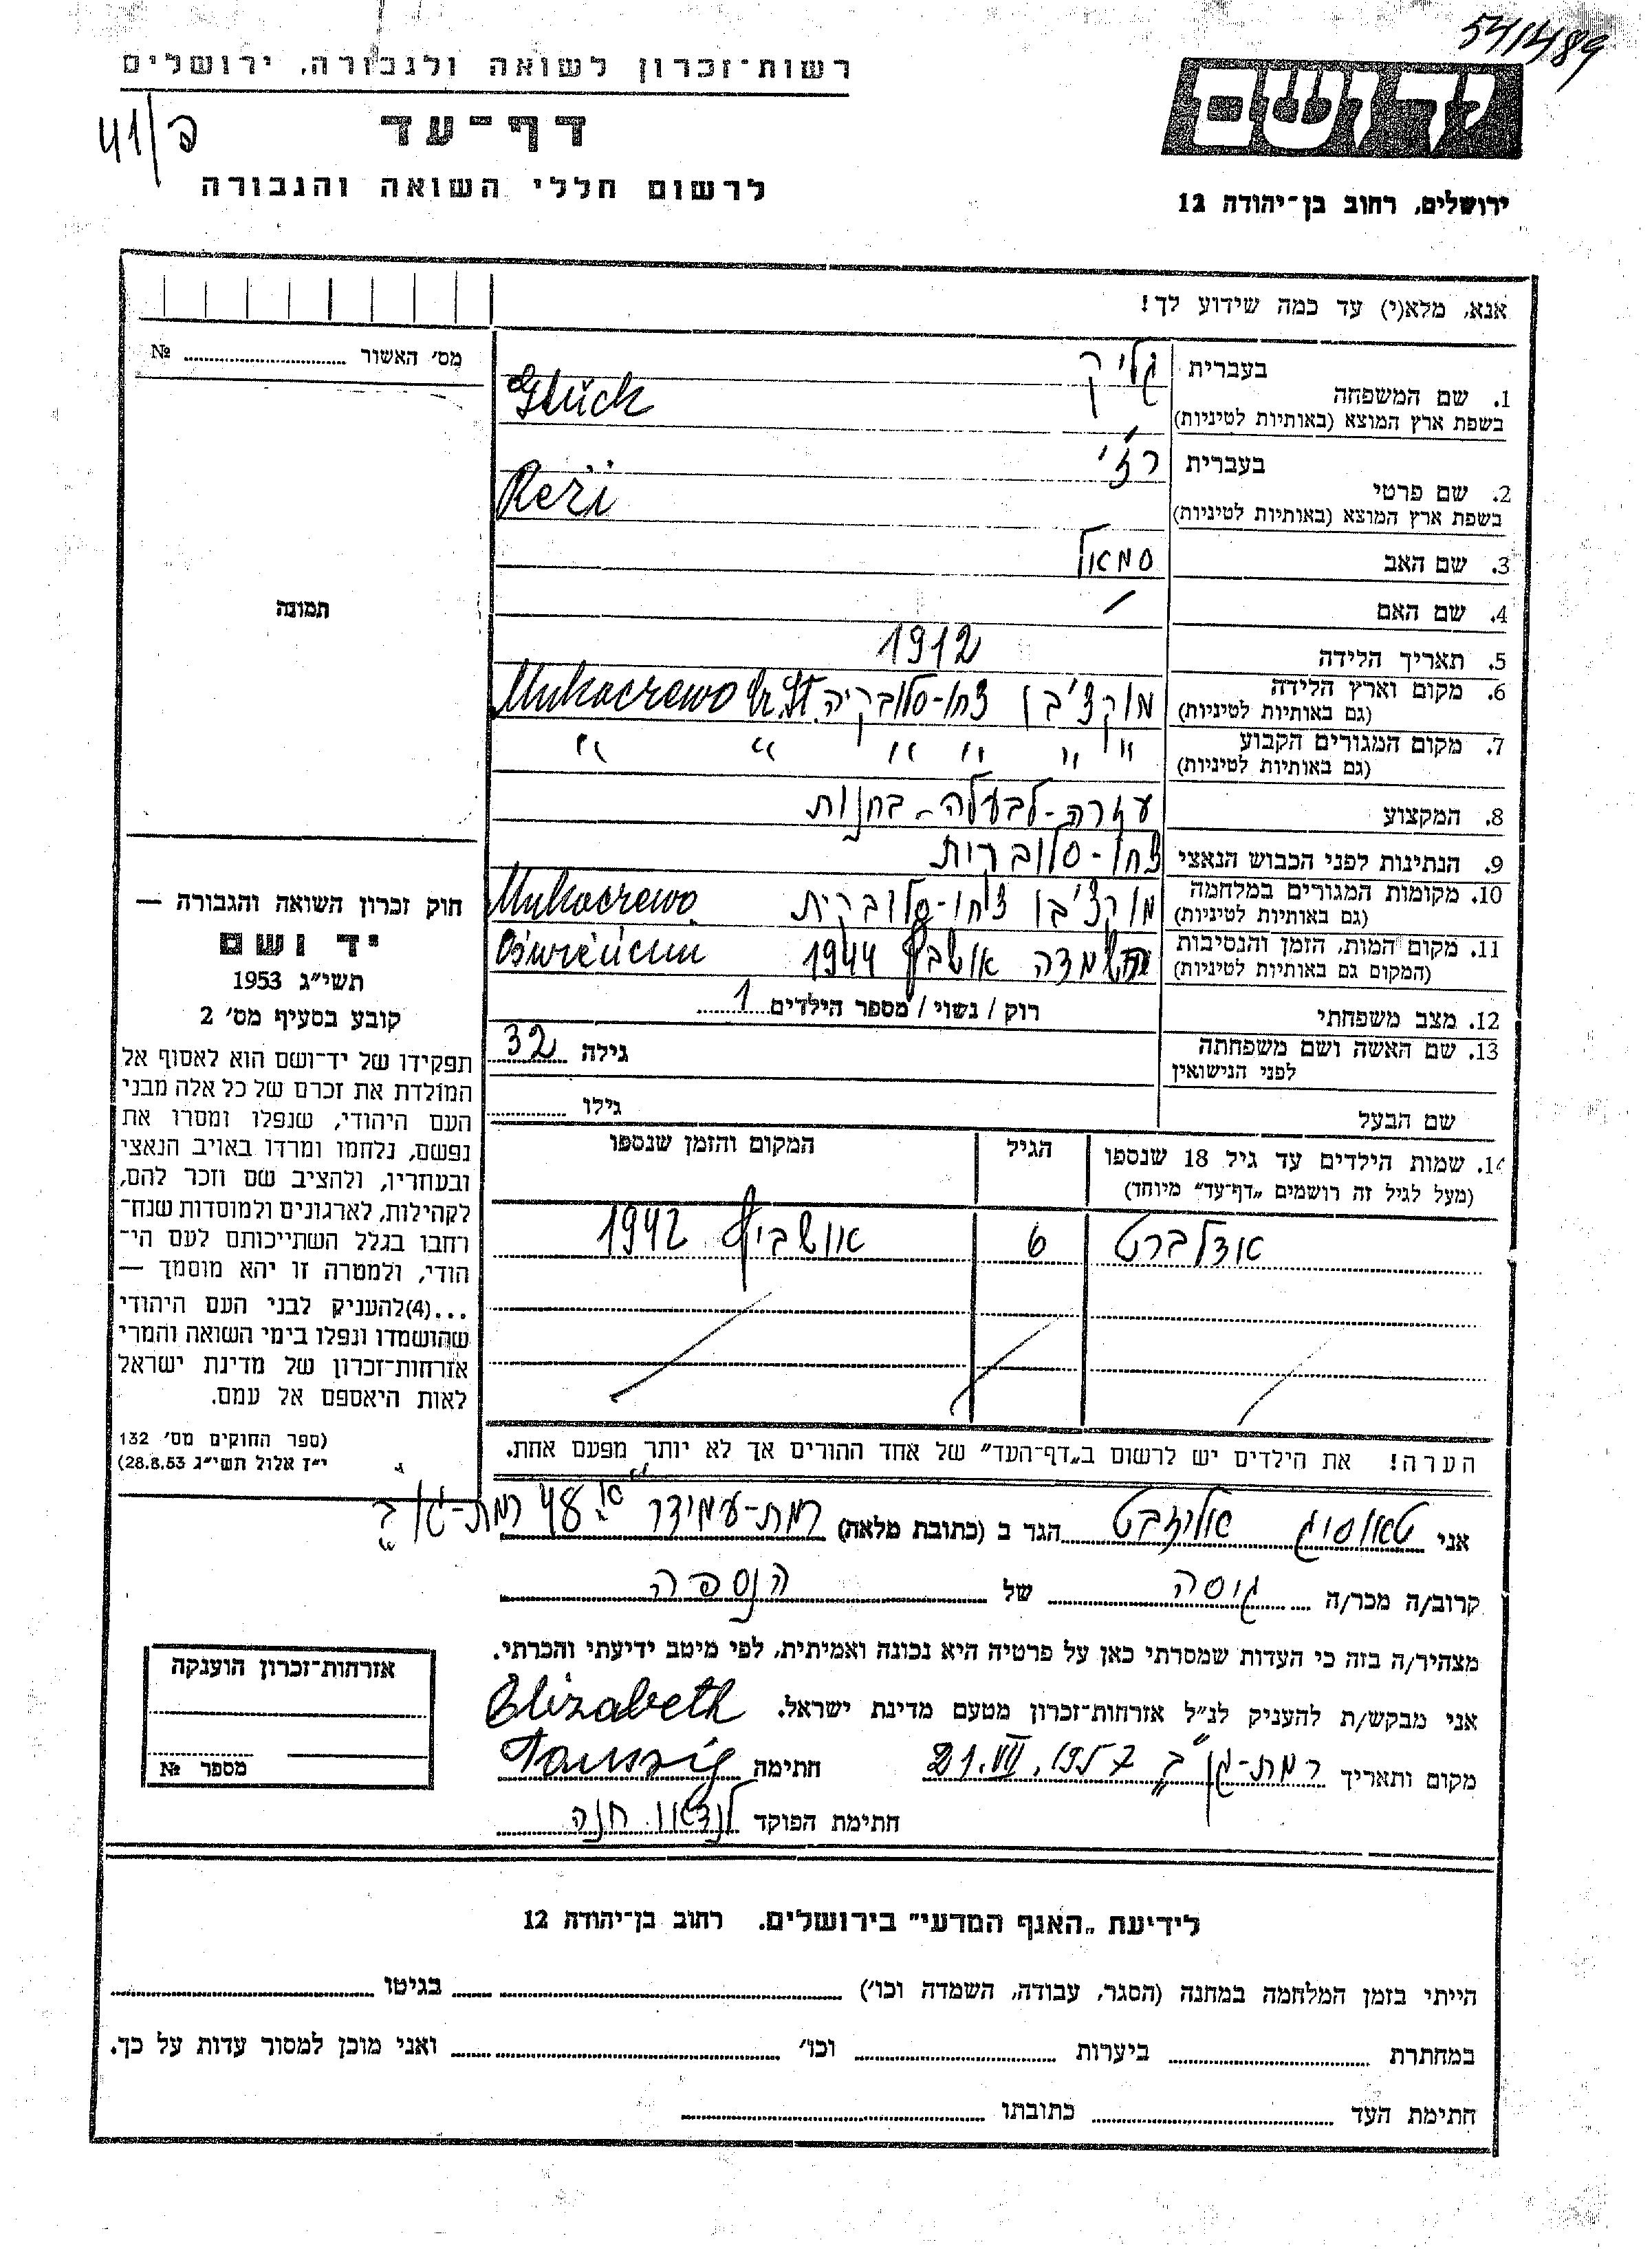 541489
רשות־זכרון לשואה ולגבורה, ירושלים
דף־עד
לרשום חללי השואה והגבורה
41/כ
יד ושם
ירושלים, רחוב בן־יהודה 12
אנא, מלא(י) עד כמה שידוע לך!
מס׳ האשור № 
1. שם המשפחה
בעברית גליק
בשפת ארץ המוצא (באותיות לטיניות) Glück
2. שם פרטי
בעברית רז׳י
בשפת ארץ המוצא (באותיות לטיניות)
3. שם האב סמאול
4. שם האם /
5. תאריך הלידה 1912
6. מקום וארץ הלידה מוקצ׳בו צכו-סלובקיה Mukaczewo
(גם באותיות לטיניות)
7. מקום המגורים הקבוע " " " " " "
(גם באותיות לטיניות)
8. המקצוע עזרה-לבעלה-בחנות
9. הנתינות לפני הכבוש הנאצי צכו-סלובקית
10. מקומות המגורים במלחמה מוקצ׳בו צכו-סלובקית Mukaczewo
(גם באותיות לטיניות)
11. מקום המות, הזמן והנסיבות השמדה אושביץ 1944
(המקום גם באותיות לטיניות)
12. מצב משפחתי רוק / נשוי / מספר הילדים 1
13. שם האשה ושם משפחתה גילה 32
לפני הנישואין
שם הבעל גילו
14. שמות הילדים עד גיל 18 שנספו הגיל המקום והזמן שנספו
(מעל לגיל זה רושמים „דף־עד״ מיוחד)
אדלברט 6 אושביץ 1942
הערה! את הילדים יש לרשום ב„דף־העד״ של אחד ההורים אך לא יותר מפעם אחת.
תמונה
חוק זכרון השואה והגבורה —
יד ושם
תשי״ג 1953
קובע בסעיף מס׳ 2
תפקידו של יד־ושם הוא לאסוף אל
המולדת את זכרם של כל אלה מבני
העם היהודי, שנפלו ומסרו את
נפשם, נלחמו ומרדו באויב הנאצי
ובעוזריו, ולהציב שם וזכר להם,
לקהילות, לארגונים ולמוסדות שנח־
רחבו בגלל השתייכותם לעם הי־
הודי, ולמטרה זו יהא מוסמך —
...(4)להעניק לבני העם היהודי
שהושמדו ונפלו בימי השואה והמרי
אזרחות־זכרון של מדינת ישראל
לאות היאספם אל עמם.
(ספר החוקים מס׳ 132
י״ז אלול תשי״ג 28.8.53)
אני טאוסיג אליזבט הגר ב (כתובת מלאה) רמת-עמידר 48 רמת-גן
קרוב/ה מכר/ה גיסה של הנספה
מצהיר/ה בזה כי העדות שמסרתי כאן על פרטיה היא נכונה ואמיתית, לפי מיטב ידיעתי והכרתי.
אני מבקש/ת להעניק לנ״ל אזרחות־זכרון מטעם מדינת ישראל. Elizabeth
מקום ותאריך רמת-גן 21.VII.1957 חתימה Taussig
חתימת הפוקד לנדאו חנה
אזרחות־זכרון הוענקה
מספר №
לידיעת „האגף המדעי״ בירושלים. רחוב בן־יהודה 12
הייתי בזמן המלחמה במחנה (הסגר, עבודה, השמדה וכו׳) בגיטו
במחתרת ביערות וכו׳ ואני מוכן למסור עדות על כך.
חתימת העד כתובתו